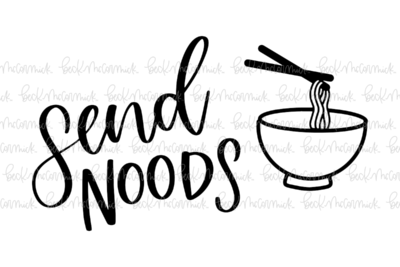 Send
NOODS